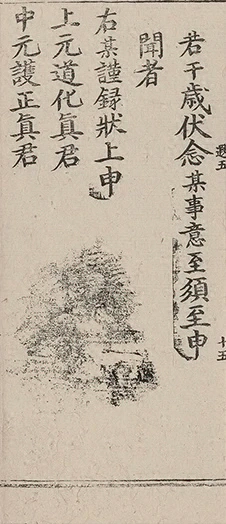 若干歲伏念某事意至須至申
聞者
右某謹録狀上申
上元道化真君
中元護正真君
十五